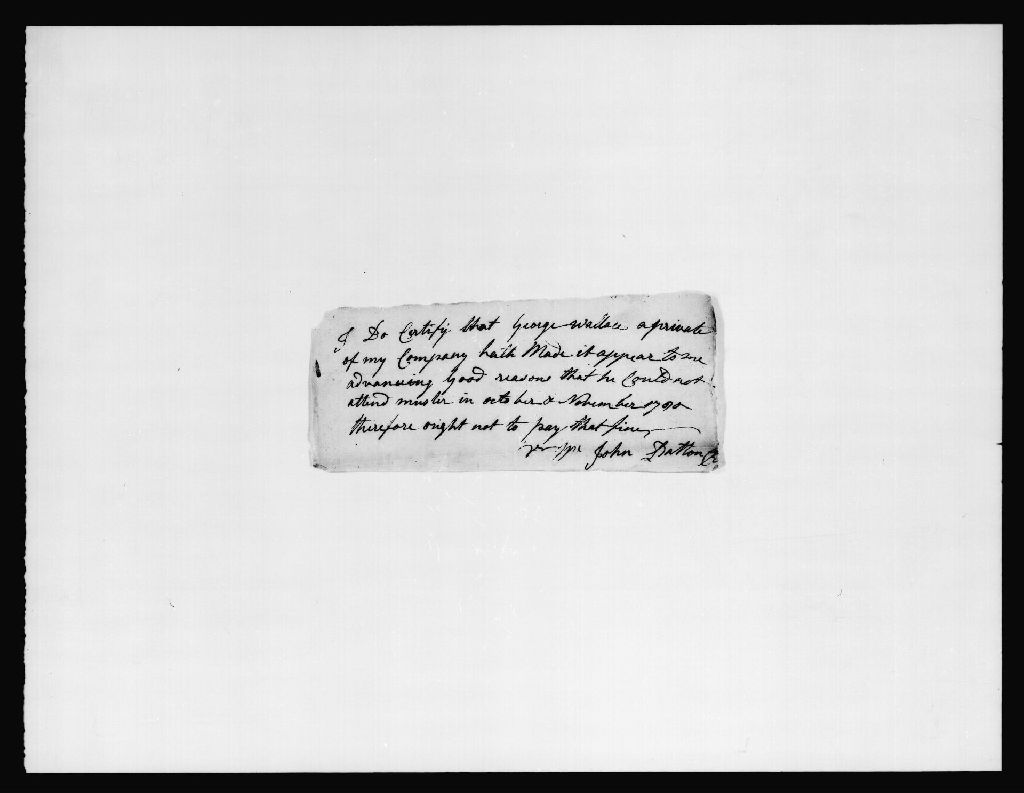 I Do Certify that George Wallace a private
of my Company hath Made it appear to me
advanceing Good reasons that he Could not
attend muster in october & November 1790
therefore ought not to pay that fine
John Dutton